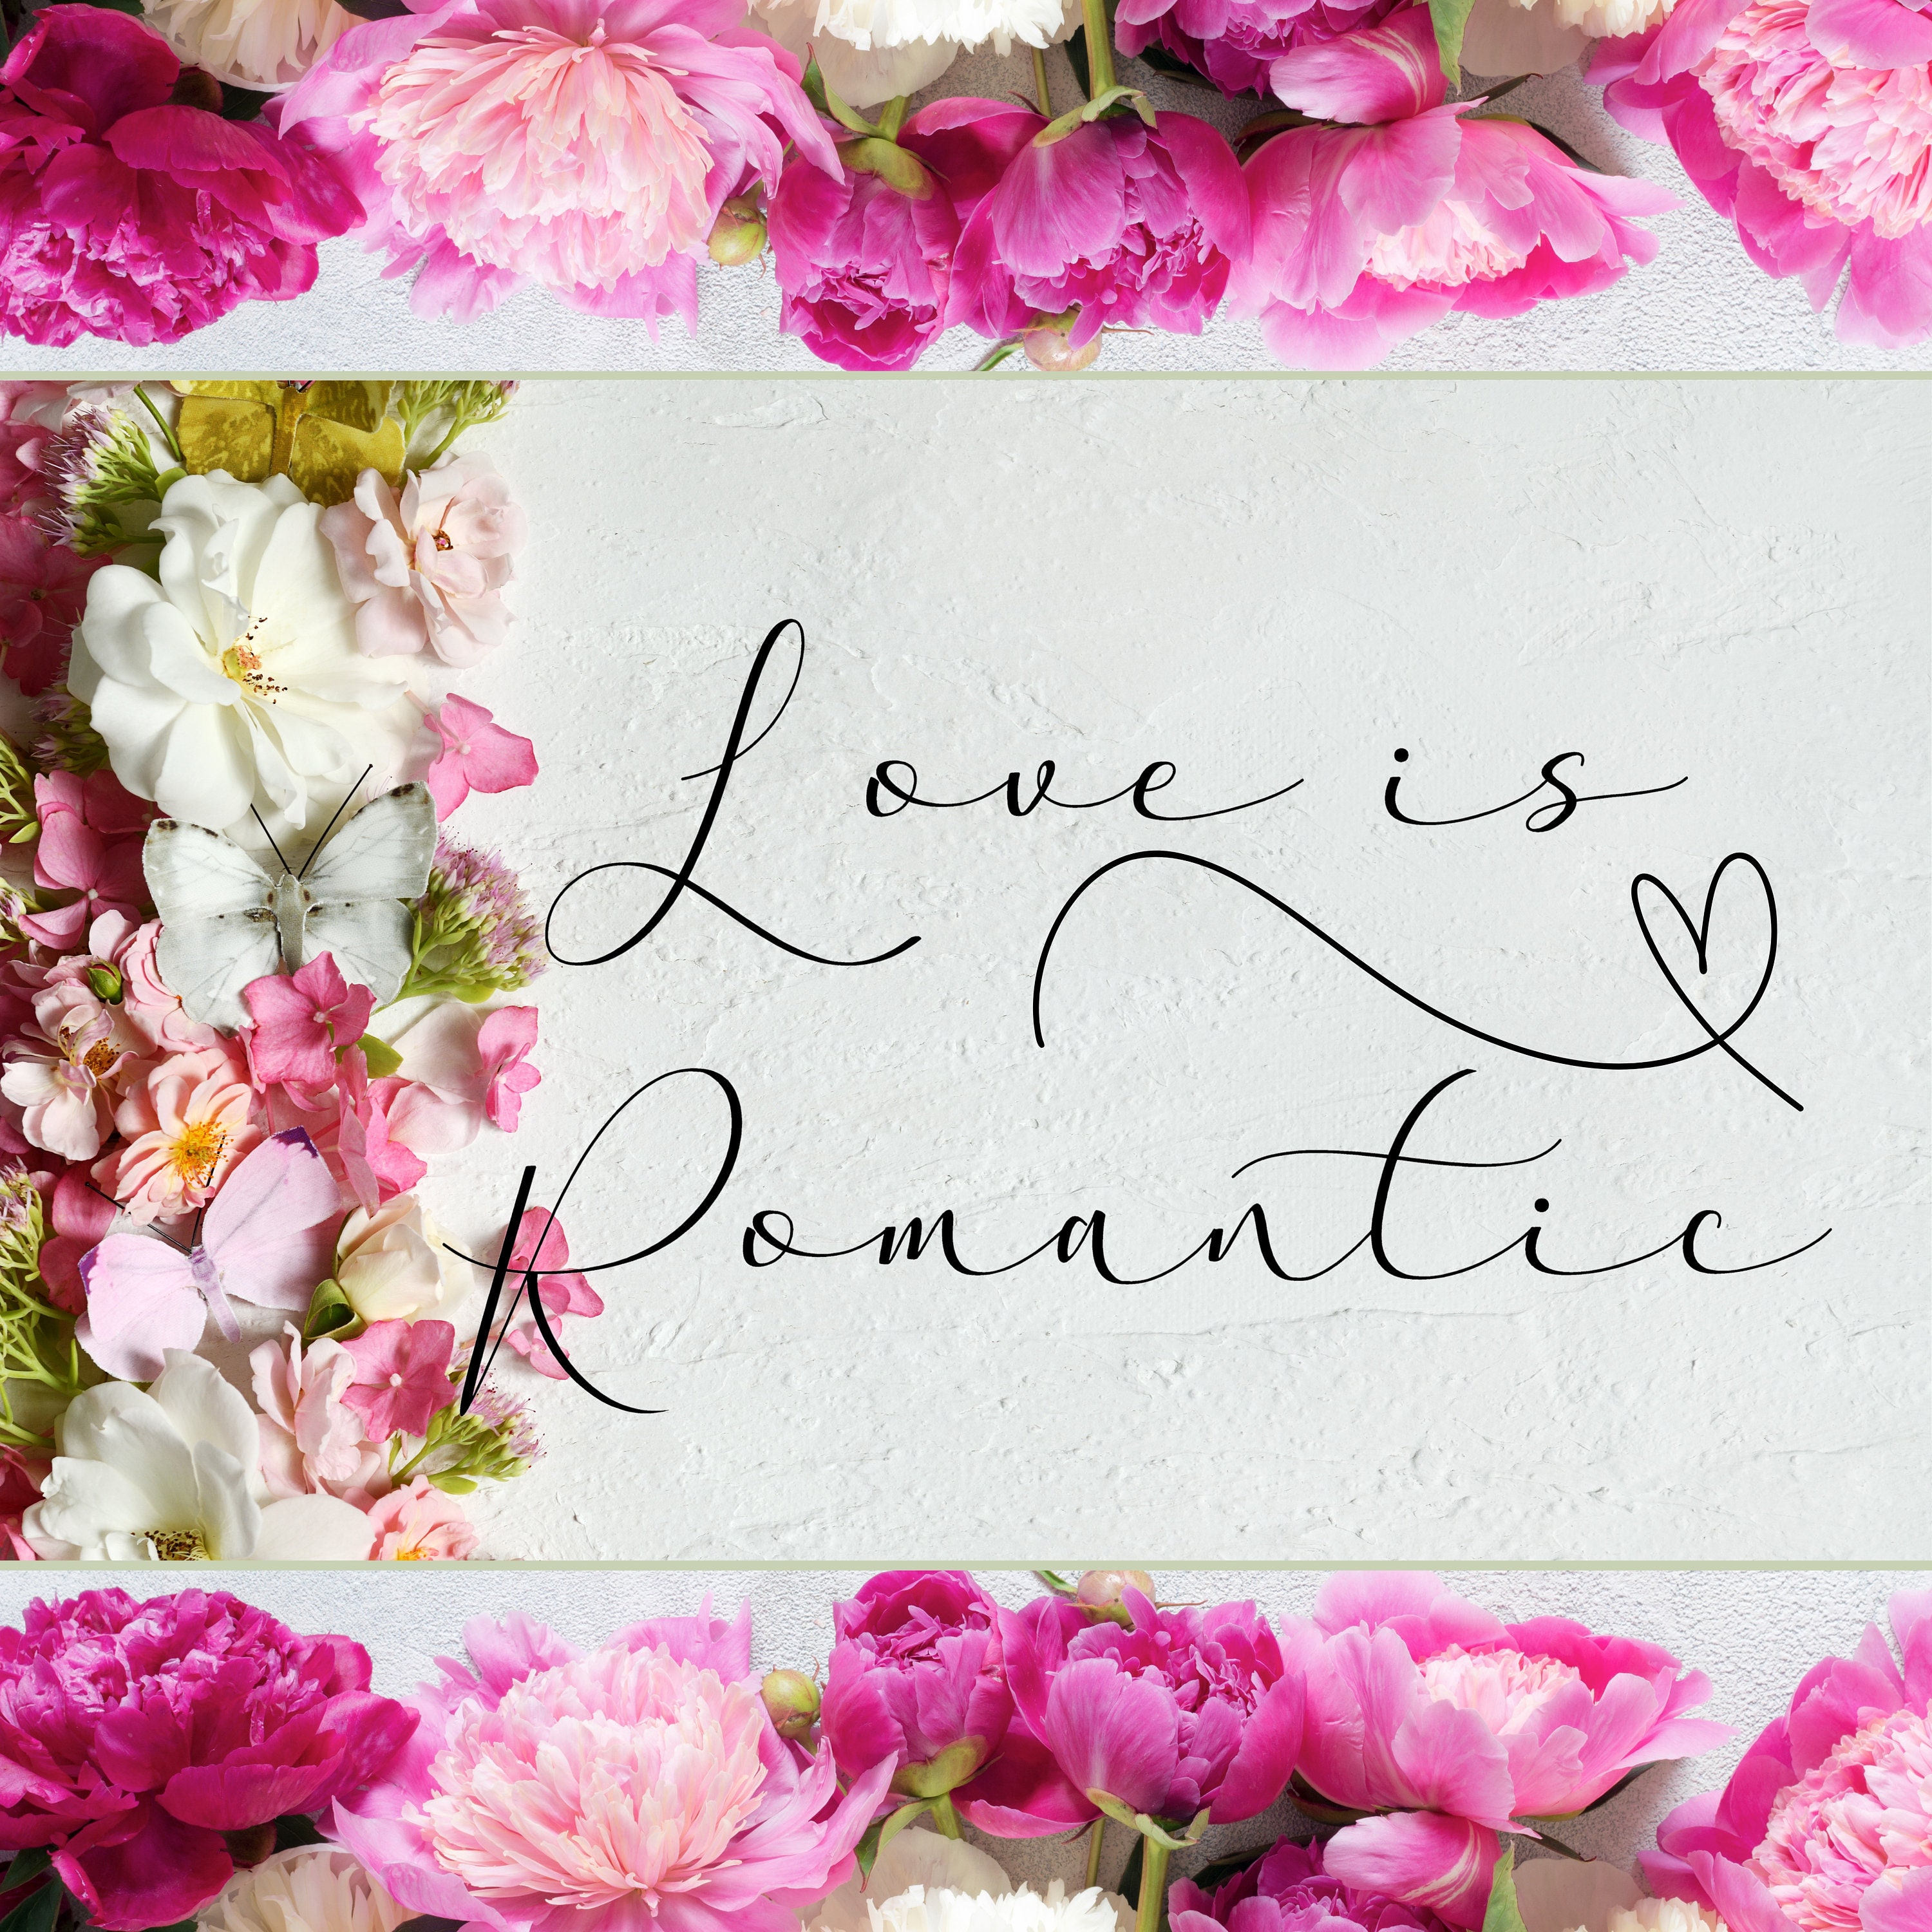 Love is
Romantic